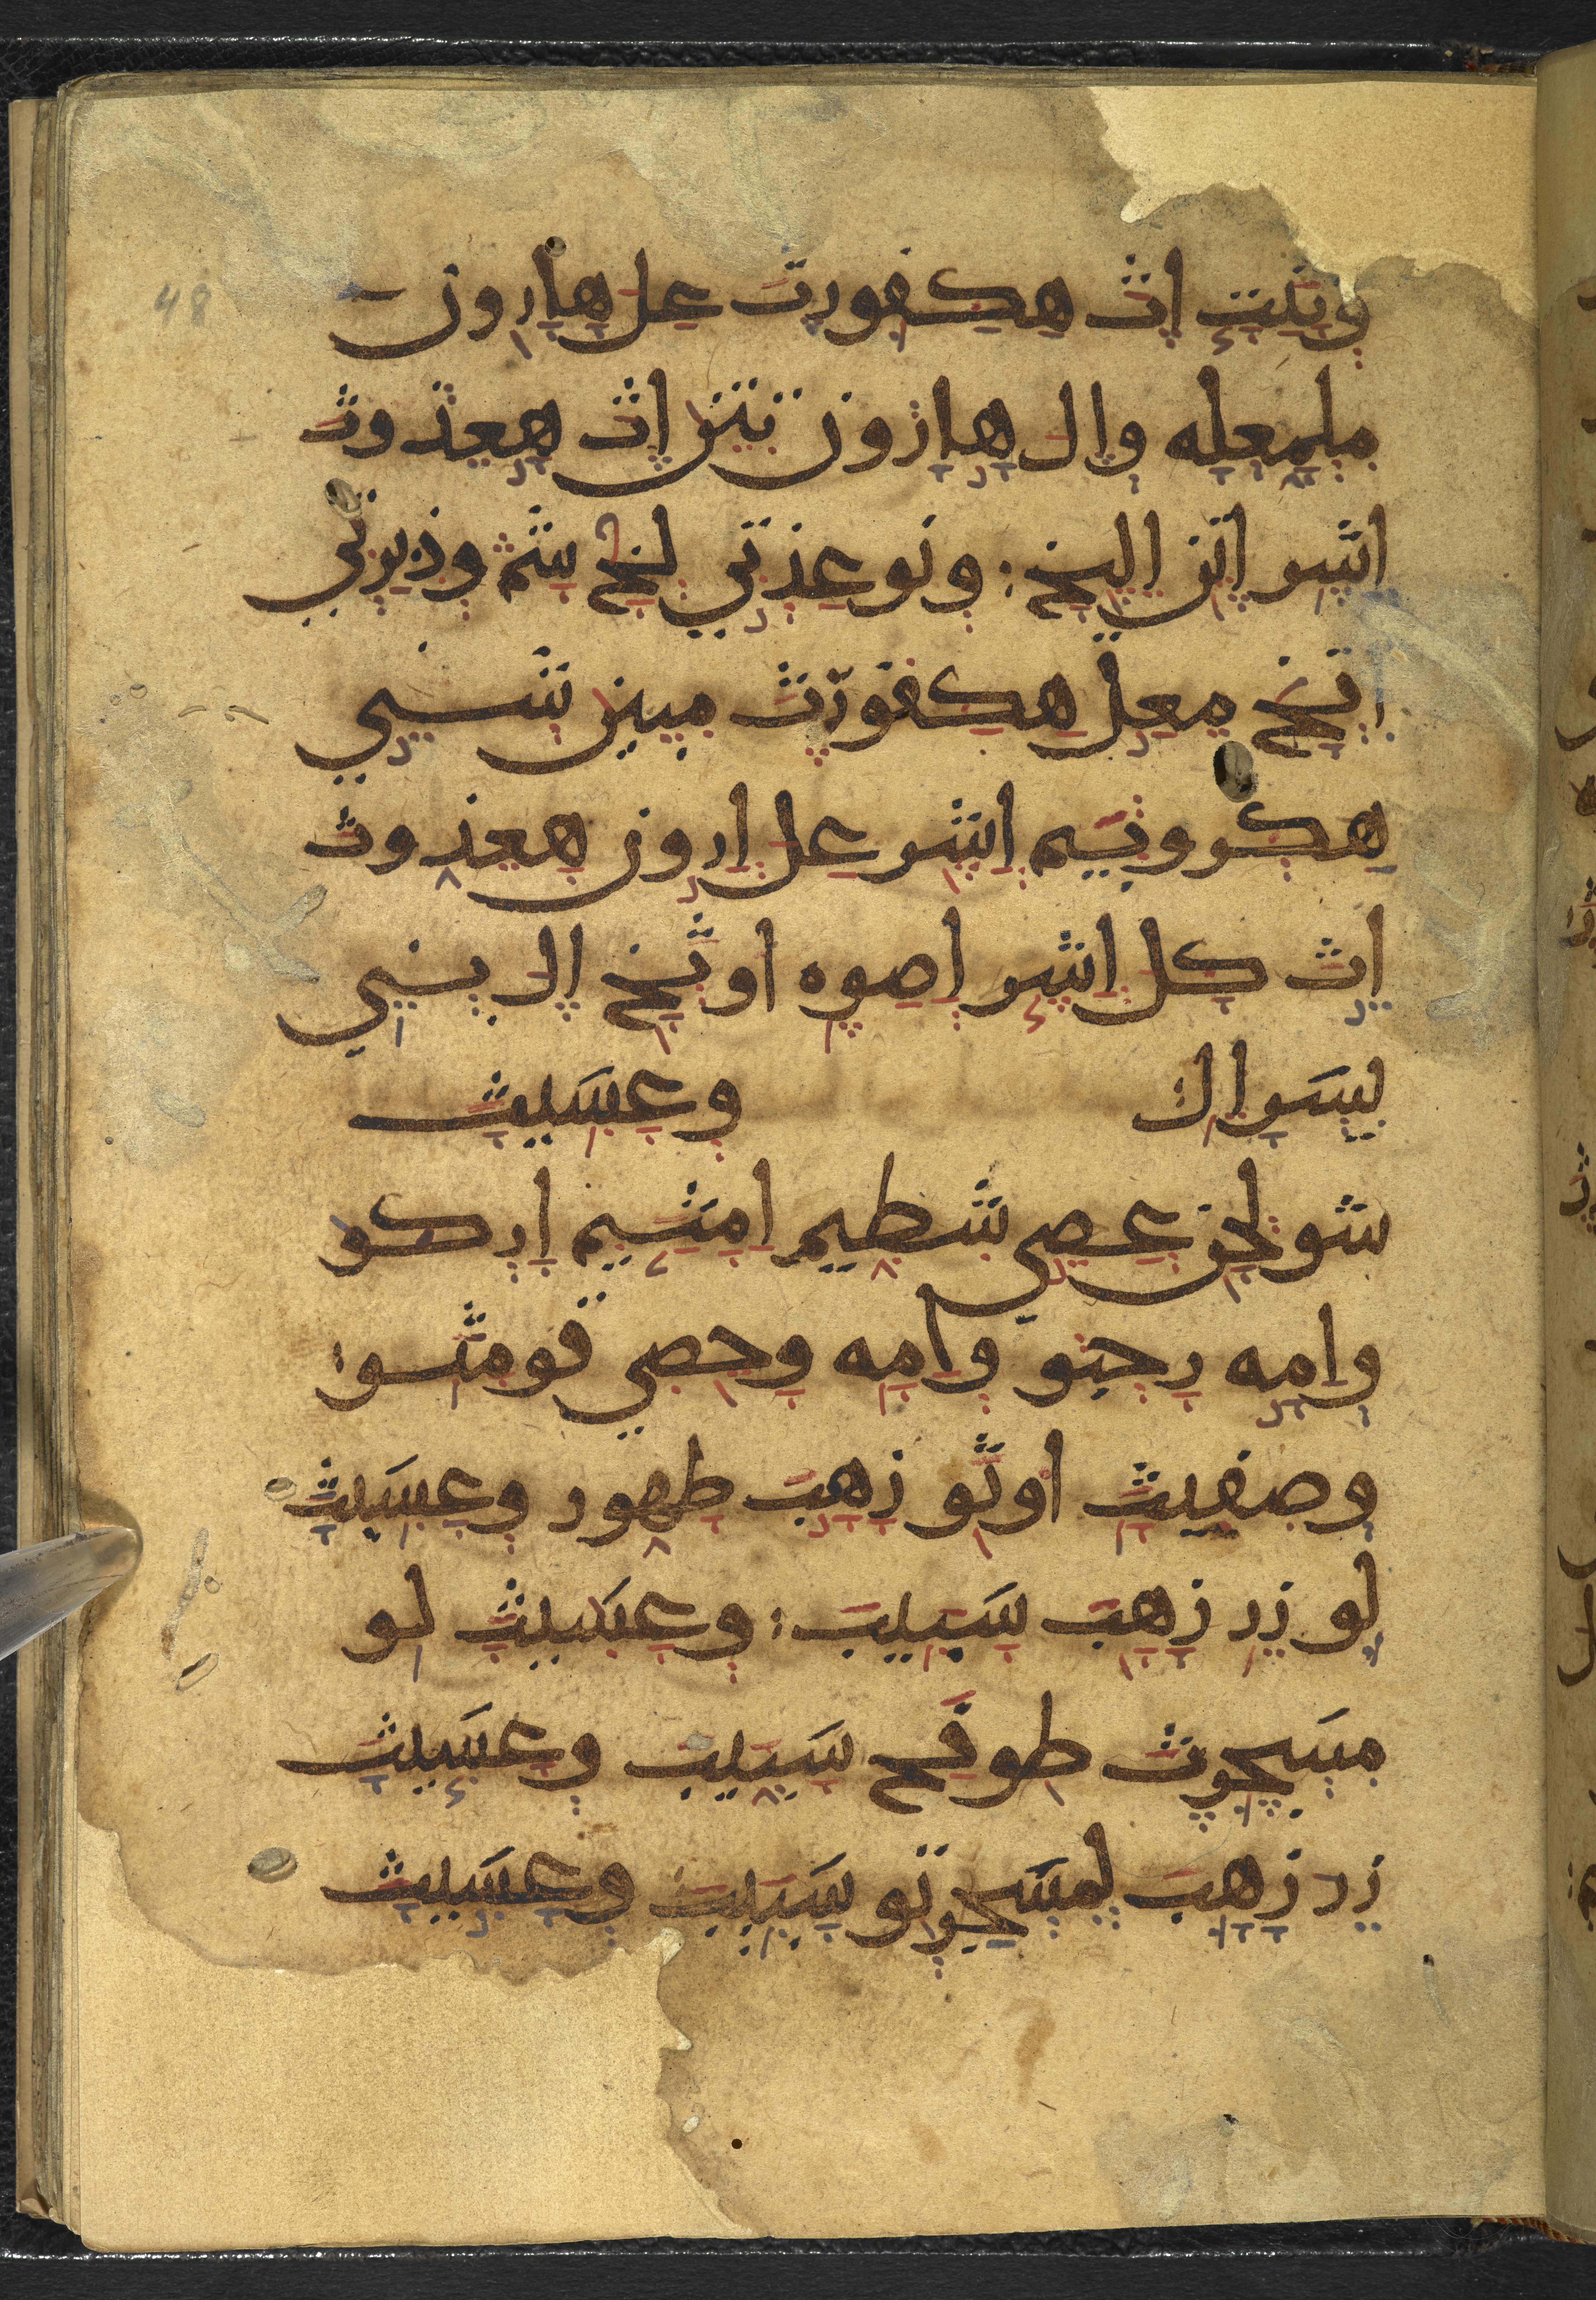 48
ونثت اث هكفورت عل هارون
ملمعله وال هارون تتن اث هعذوث
اشر اتن اليخ: ونوعذتي لخ شم وذبرتي
اتخ معل هكفورث مبين شني
هكروبيم اشر عل ارون هعذوث
اث كل اشر اصوه اوثخ ال بني
يسرال وعسيث
شولحن عصي شطيم امثيم اركو
وامه رحبو وامه وحصي قومثو:
وصفيث اوثو زهب طهور وعسيث
لو زر زهب سبيب: وعسيث لو
مسجرث طوفح سبيب وعسيث
زر زهب لمسجرتو سبيب وعسيث